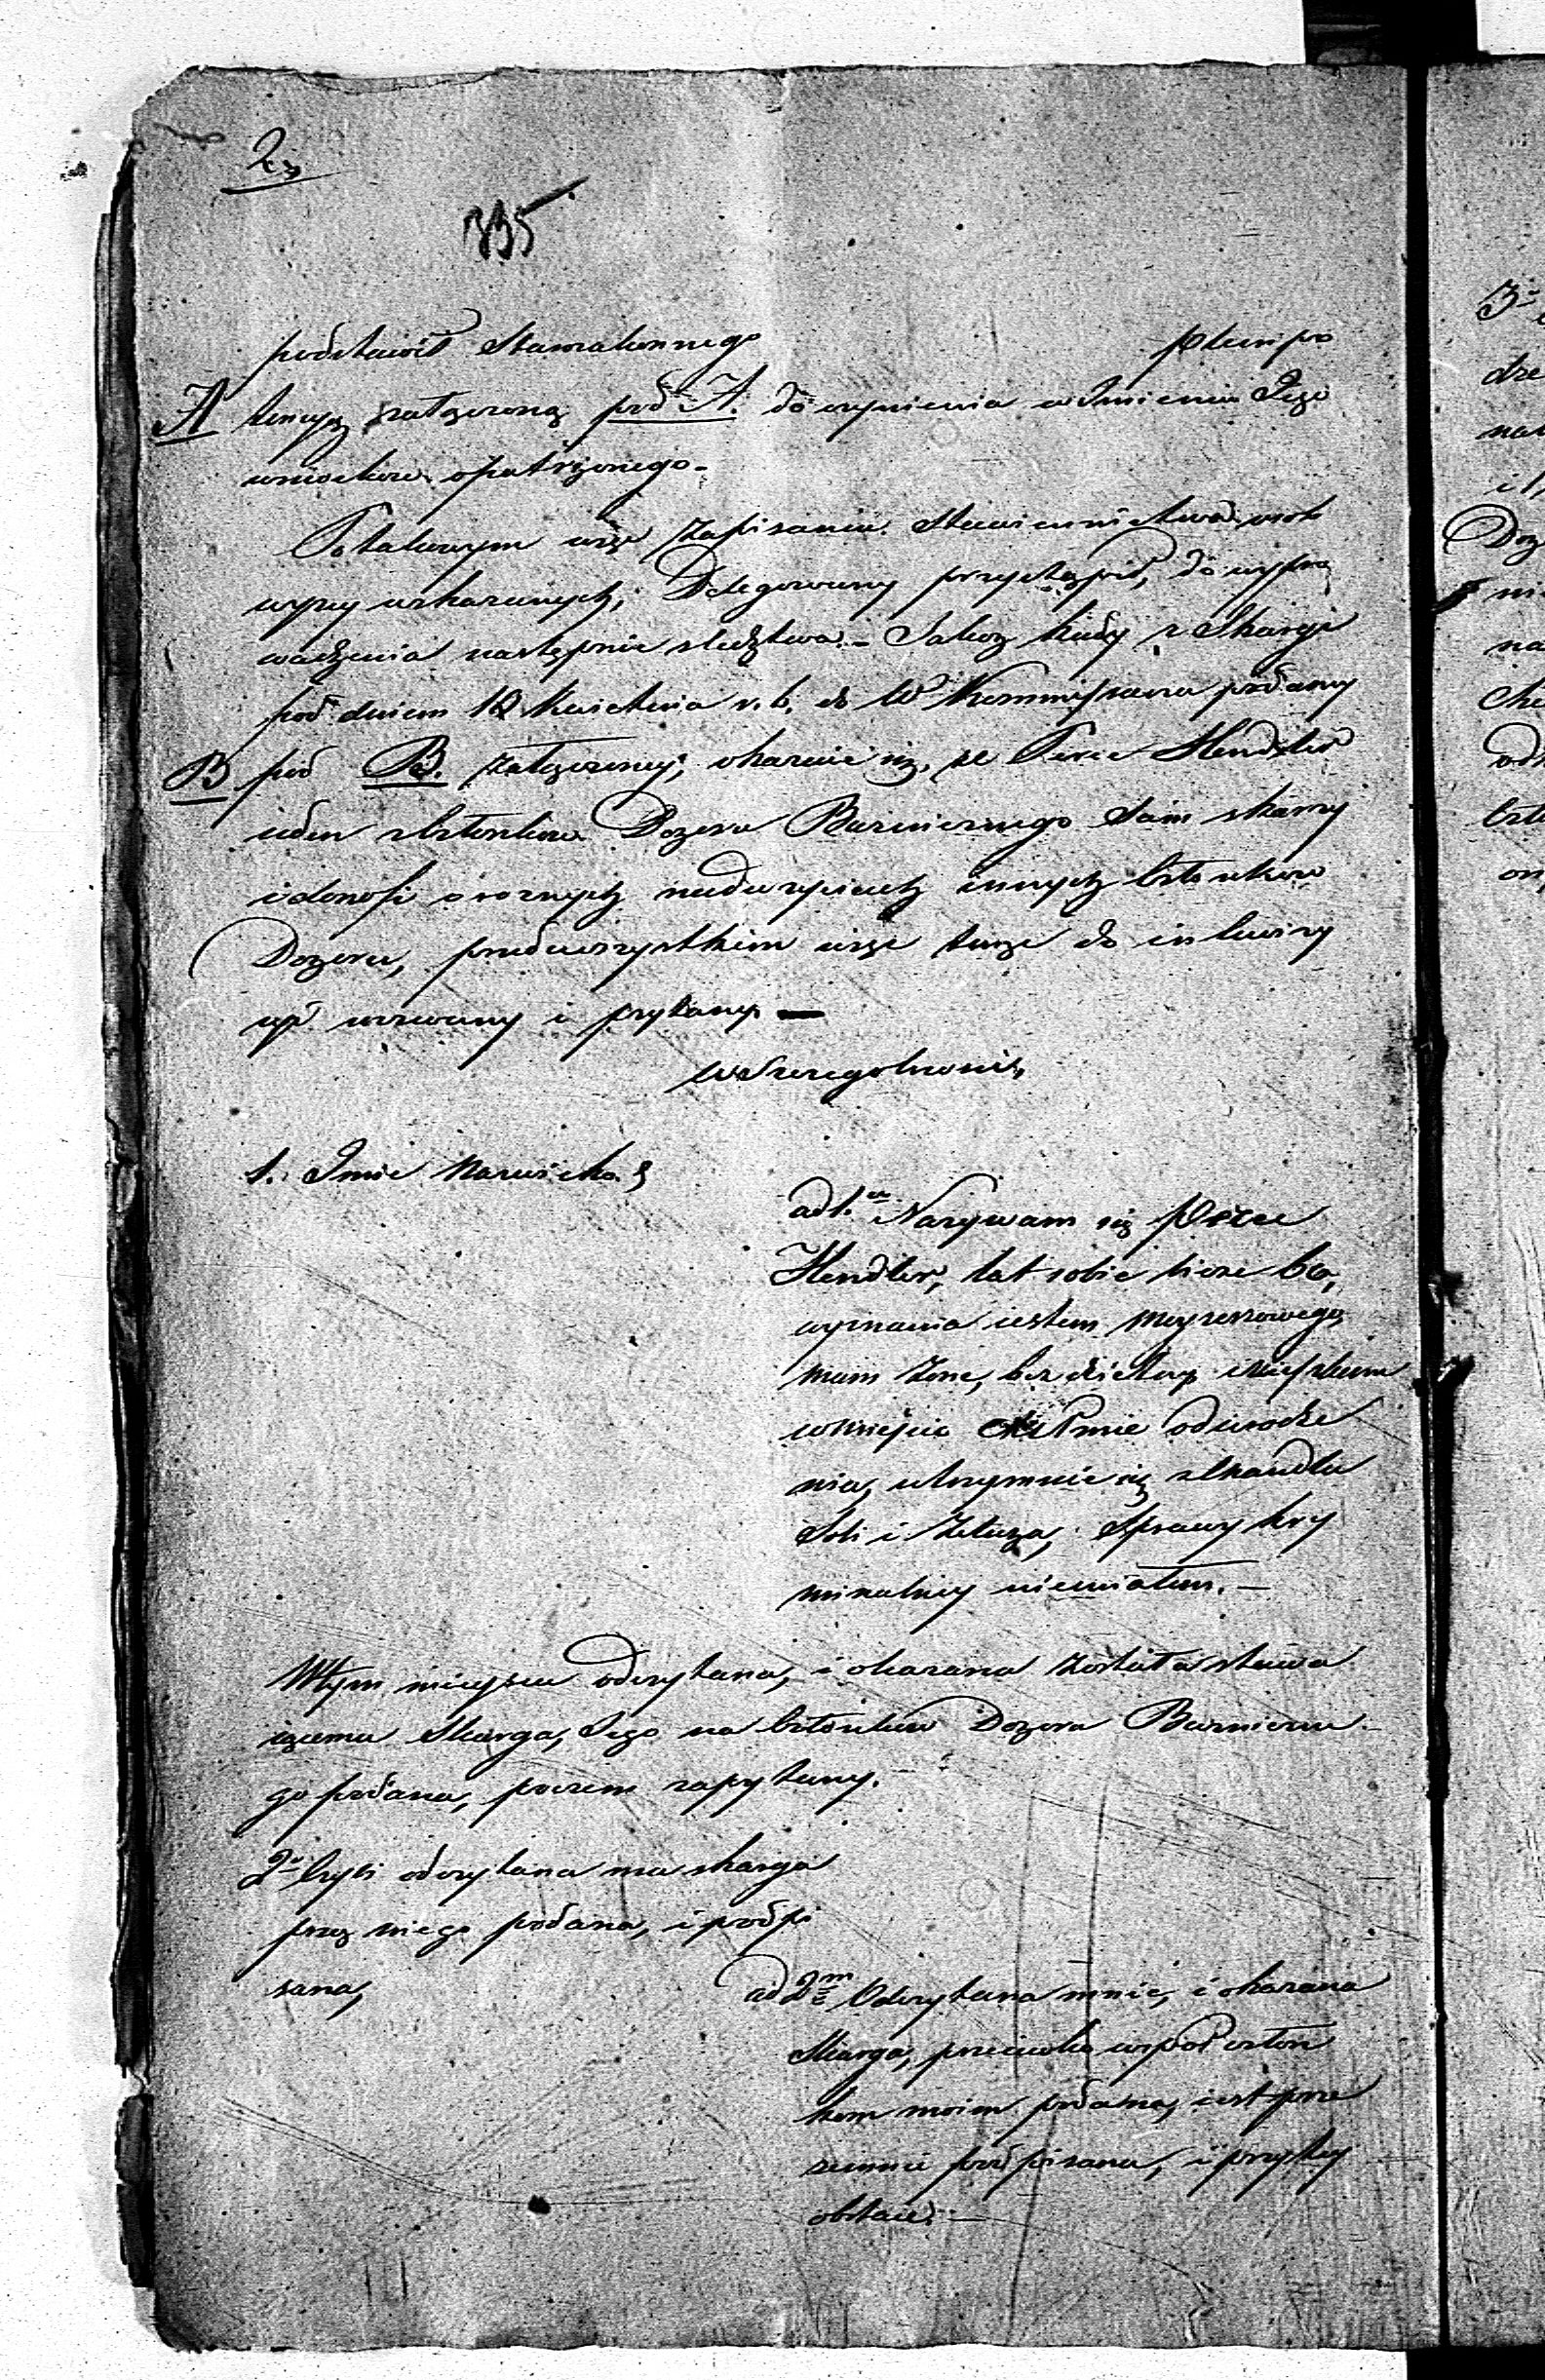 2.
335
podstawił plenipo
A tencyą załączoną pod A. do czynienia w Imieniu Jego
wniosków opatrzonego.
Po takowym więc zapisaniu Stawiennictwa osób
wyżey wskazanych, Delegowany przystąpił, do wypro
wadzenia następnie sledztwa. – Jakoż kiedy z Skargi
pod dniem 12 Kwietnia r. b. do W Kommissarza podaney
B pod B. załączoney, okazuie się, że Perec Hendler
ieden z Członków Dozoru Bużniczego Sam skarży
i donosi o roznych nadużyciach innych Członków
Dozoru, przedewszystkiem więc tenże do
wezwany i pytany —
w Szczegolnosci,
1. Imie Nazwisko,
ad 1. Nazywam się Perec
Hendler, lat sobie licze 60,
wyznania iestem moyżeszowego,
mam żone, bez dzietny mieszkam
w mieyscu Chełmie od urodze
nia, utrzymuie się z handlu
Soli i Żelaza, Sprawy kry
minalney niemiałem. –
W tym mieyscu odczytana, i okazana została stawa
iącemu Skarga, Jego na Członków Dozoru Bużnicze
go podana, poczem zapytany. –
2o Czyli odczytana mu skarga
przez niego podana, i podpi
sana,
ad 2m Odczytana mnie, i okazana
Skarga, przeciwko współ człon
kom moim podana, iest prze
zemnie podpisana, i przy tey
obstaie. –
3o
dze
na
i
Doz
ni
na
odn